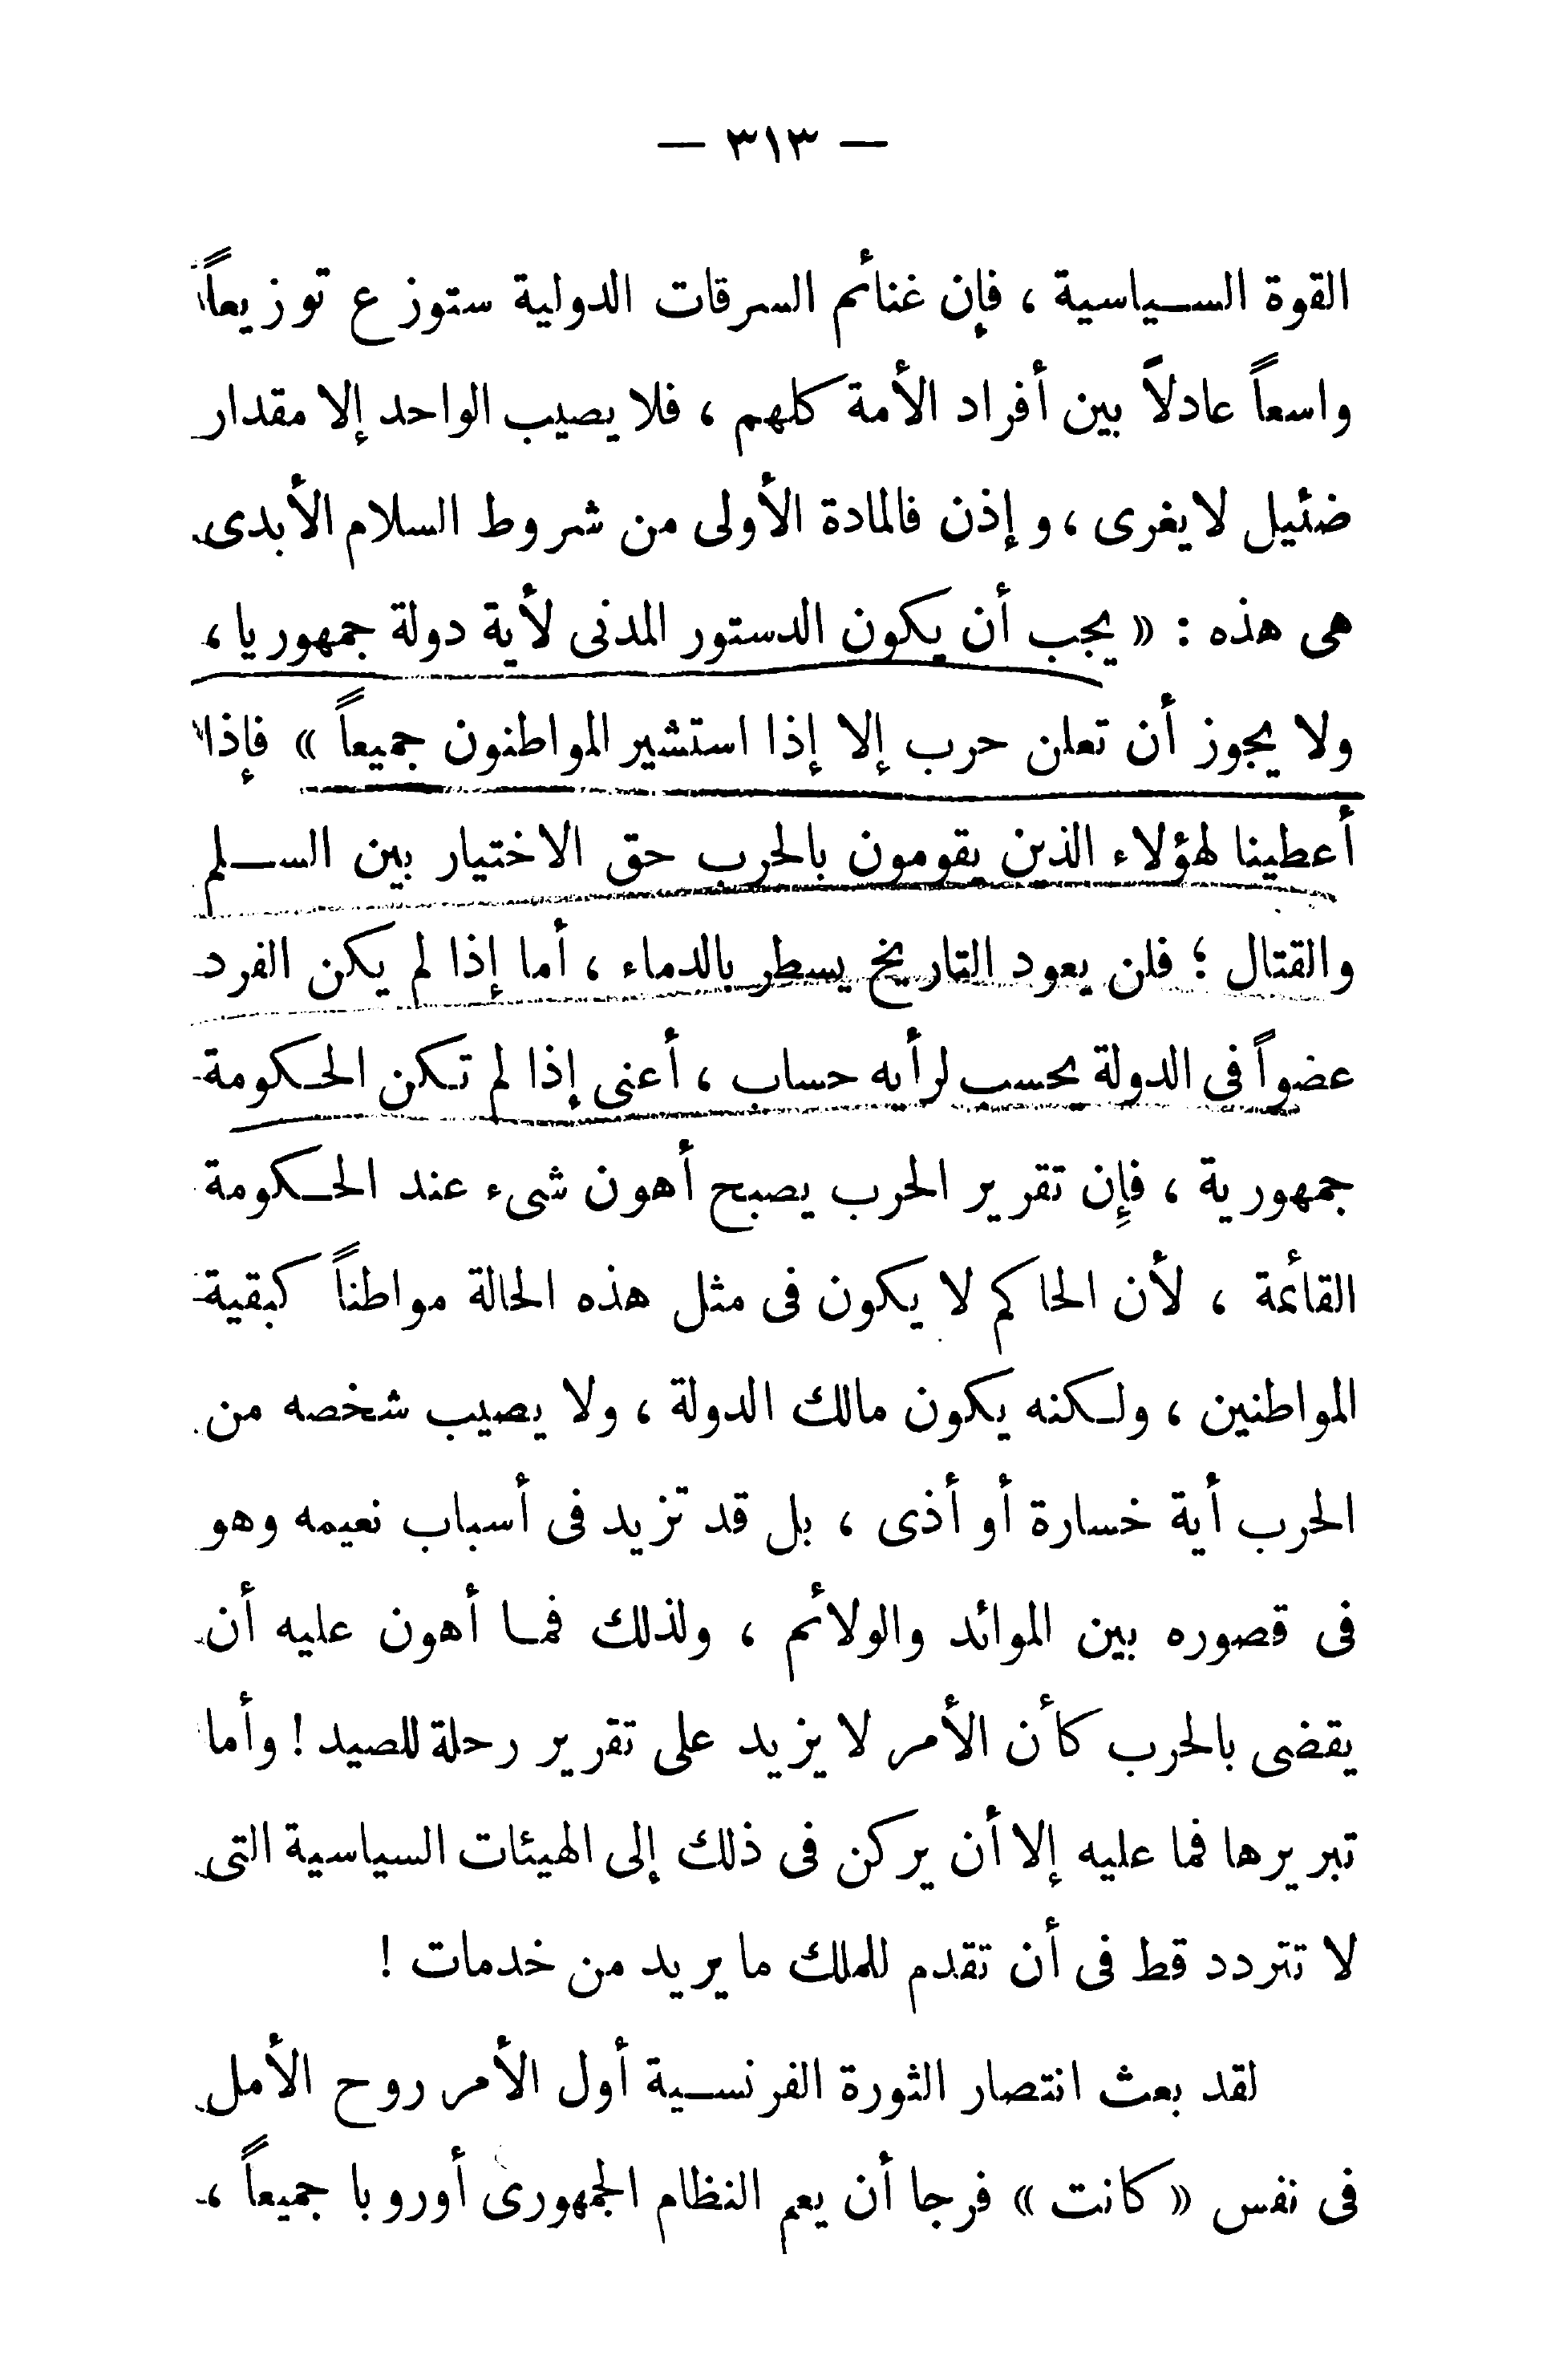 — ٣١٣ —
القوة السياسية ، فإن غنائم السرقات الدولية ستوزع توزيعاً
واسعاً عادلاً بين أفراد الأمة كلهم ، فلا يصيب الواحد إلا مقدار
ضئيل لا يغرى ، وإذن فالمادة الأولى من شروط السلام الأبدى
هى هذه : « يجب أن يكون الدستور المدنى لأية دولة جمهوريا ،
ولا يجوز أن تعلن حرب إلا إذا استشير المواطنون جميعاً » فإذا
أعطينا لهؤلاء الذين يقومون بالحرب حق الاختيار بين السلم
والقتال ؛ فلن يعود التاريخ يسطر بالدماء ، أما إذا لم يكن الفرد
عضواً فى الدولة يحسب لرأيه حساب ، أعنى إذا لم تكن الحكومة
جمهورية ، فإِن تقرير الحرب يصبح أهون شىء عند الحكومة
القائمة ، لأن الحاكم لا يكون فى مثل هذه الحالة مواطناً كبقية
المواطنين ، ولكنه يكون مالك الدولة ، ولا يصيب شخصه من
الحرب أية خسارة أو أذى ، بل قد تزيد فى أسباب نعيمه وهو
فى قصوره بين الموائد والولائم ، ولذلك فما أهون عليه أن
يقضى بالحرب كأن الأمر لا يزيد على تقرير رحلة للصيد ! وأما
تبريرها فما عليه إلا أن يركن فى ذلك إلى الهيئات السياسية التى
لا تتردد قط فى أن تقدم للملك ما يريد من خدمات !
لقد بعث انتصار الثورة الفرنسية أول الأمر روح الأمل
فى نفس « كانت » فرجا أن يعم النظام الجمهورى أوروبا جميعاً ،